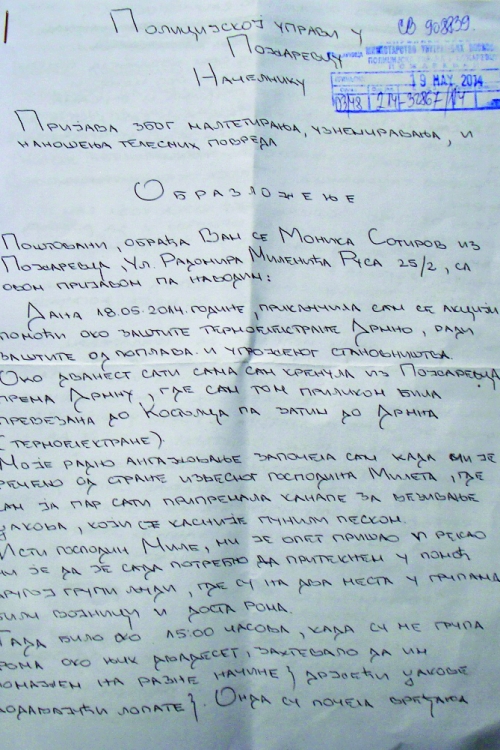 Полицијској управи у
СВ 908839.
Пожаревцу
Начелнику
19 MAY 2014
03/48 214-32867/14
Пријава због малтетирања, узнемиравања, и
наношења телесних повреда
Образложење
Поштовани, обраћа Вам се Моника Сотиров из
Пожаревца, Ул. Радомира Миленића Руса 25/2, са
овом пријавом па наводим:
Дана 18.05.2014. године, прикључила сам се акцији
помоћи око заштите термоелектране Дрмно, ради
заштите од поплава и угроженог становништва.
Око дванест сати сама сам кренула из Пожаревца
према Дрмну, где сам том приликом била
превезана до Костолца па затим до Дрмна
(термоелектране).
Моје радно ангажовање започела сам када ми је
речено од стране извесног господина Милета, где
сам за пар сати припремала канапе за везивање
џакова, који се касније пунили песком.
Исти господин Миле, ми је опет пришао и рекао
ми је да је сада потребно да притекнем у помоћ
другој групи људи, где су на два места у групама
били војници и доста рома.
Тада било око 15:00 часова, када су ме група
рома око њих двадесет, захтевало да им
помажем на разне начине } држећи џакове
додавајући лопате }. Онда су почела вређања